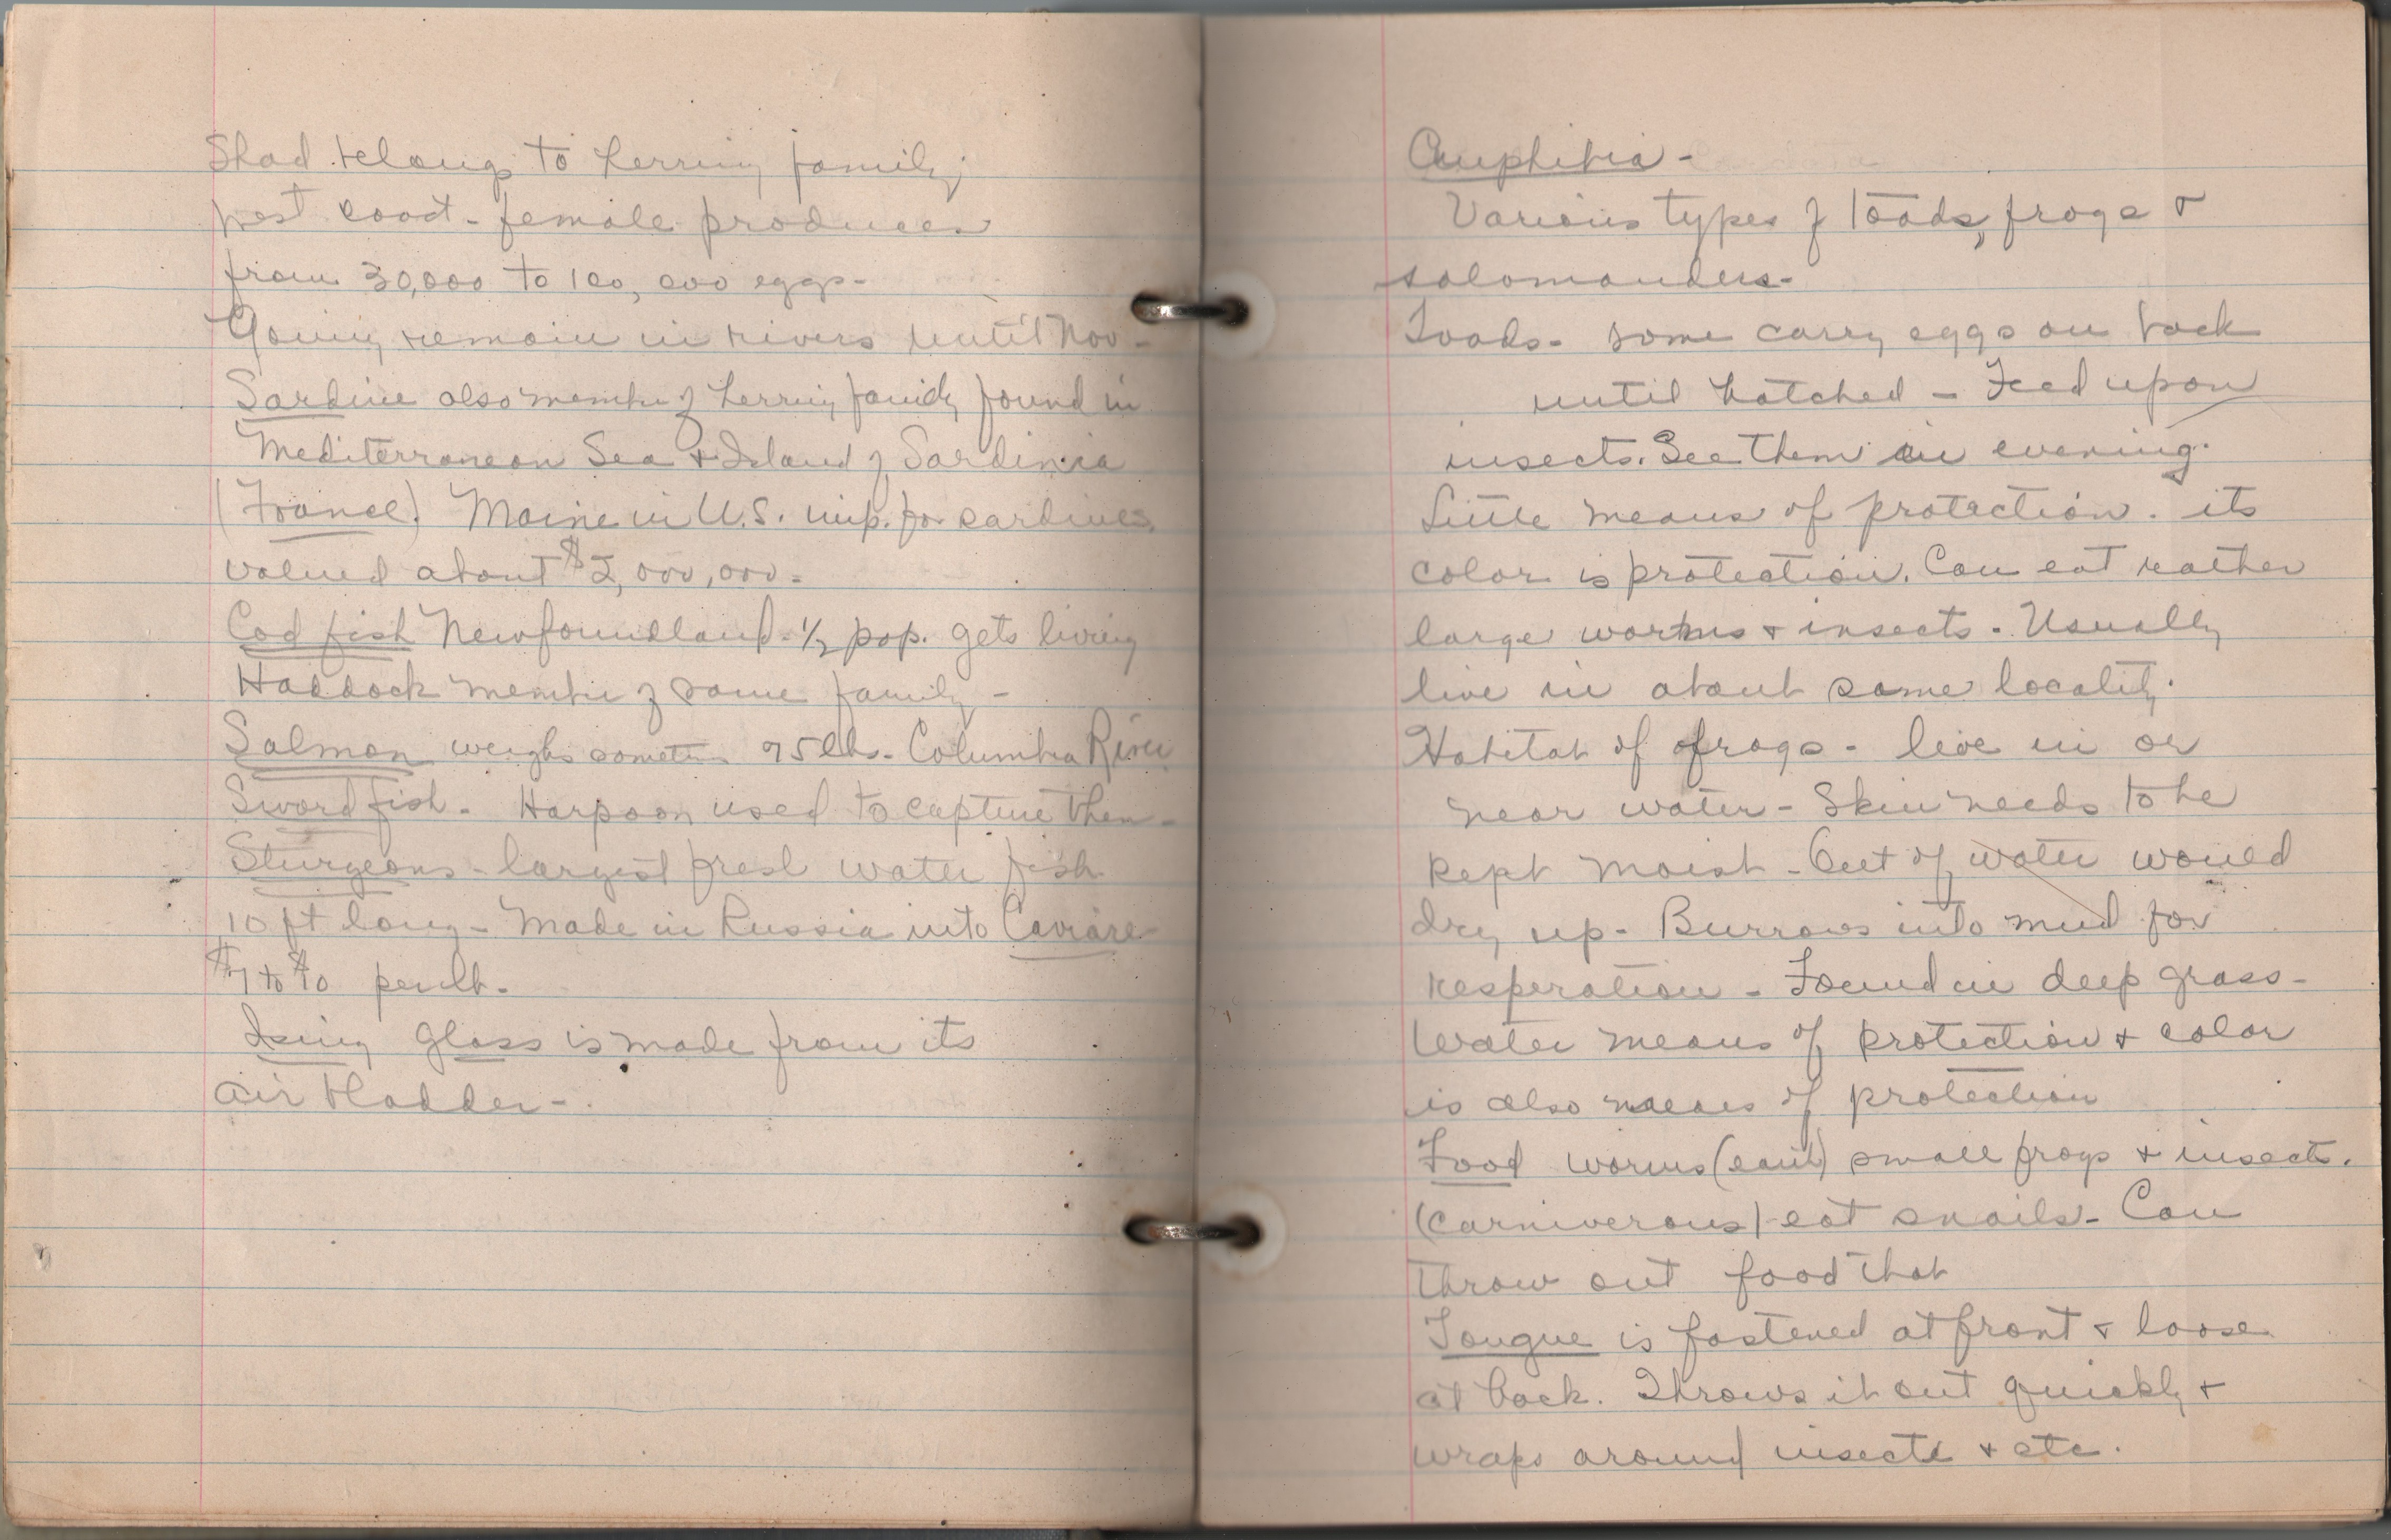 Shad belong to herring family;
west coast - female produces
from 30,000 to 100,000 eggs -
Young remain in rivers until Nov -
Sardine also member of herring family found in
Mediterranean Sea + Island of Sardinia
(France) Maine in U.S. imp. for sardines,
valued about $2,000,000 -
Cod fish Newfoundland - 1/2 pop. gets living
Haddock member of same family -
Salmon weighs sometimes 75 lb. - Columbia River
Sword fish - Harpoon used to capture them -
Sturgeons - largest fresh water fish
10 ft long - Made in Russia into Caviare -
$7 to $10 per lb. -
Ising glass is made from its
air bladder -
Amphibia -
Various types of toads, frogs +
salomanders -
Toads - some carry eggs on back
until hatched - Feed upon
insects. See them in evening.
Little means of protection. its
color is protection. Can eat rather
large worms + insects. Usually
live in about same locality.
Habitat of frogs - live in or
near water - Skin needs to be
kept moist - Out of water would
dry up - Burrows into mud for
resperation - Found in deep grass -
Water means of protection + color
is also means of protection
Food worms (earth) small frogs + insects.
(carniverous) eat snails - Can
throw out food that
Tongue is fastened at front + loose
at back. Throws it out quickly +
wraps around insects + etc.